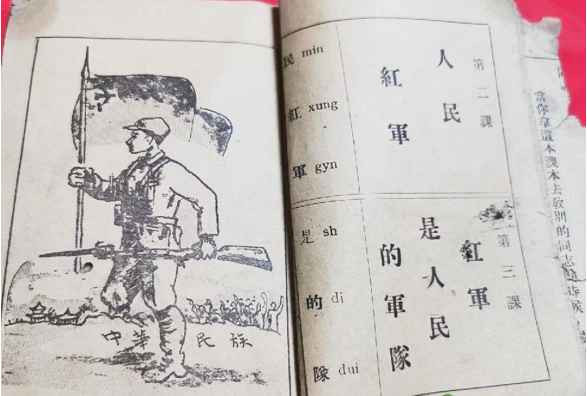 當你拿這本課本去敎別的同志
第二課
人民
紅軍
民 min
紅 xung
軍 gyn
第三課
紅軍
是人民
的軍隊
是 sh
的 di
隊 dui
中華民族